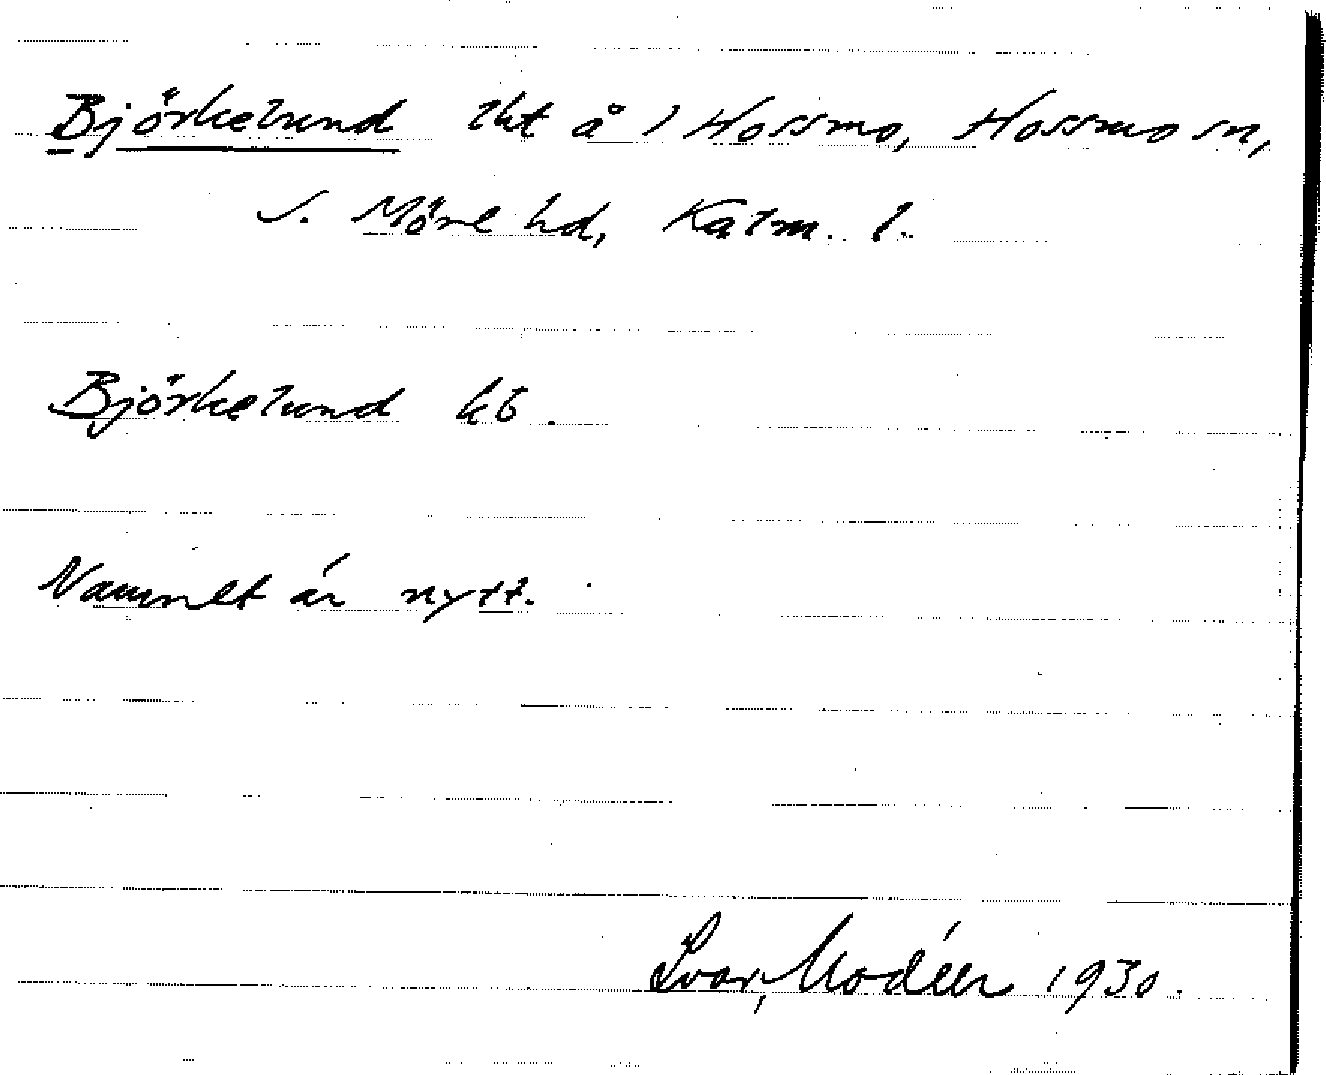 Björkelund lht å 1 Hossmo, Hossmo sn,
S. Möre hd, Kalm. l.
Björkelund kb.
Namnet är nytt.
Ivar Modéer 1930.